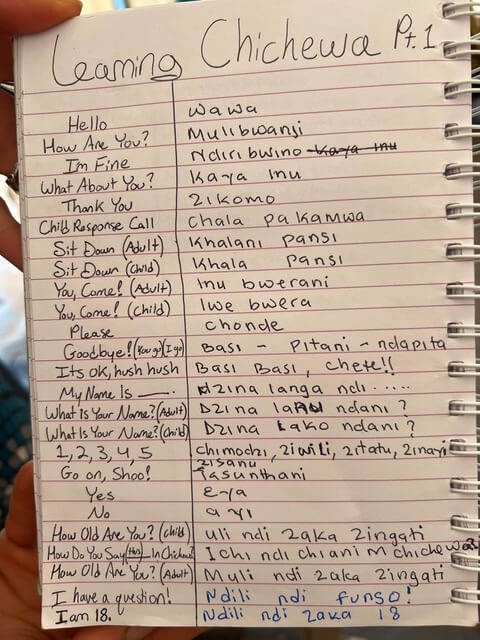 Learning Chichewa Pt.1
Hello wawa
How Are You? Mulibwanji
Im Fine Ndiri bwino kaya inu
What About You? Kaya inu
Thank You Zikomo
Child Response Call Chala pakamwa
Sit Down (Adult) Khalani pansi
Sit Down (Child) Khala pansi
You, Come! (Adult) Inu bwerani
You, Come! (child) Iwe bwera
Please chonde
Goodbye! (You go) (I go) Basi - pitani - ndapita
Its ok, hush hush Basi Basi, chete!!
My Name Is ___. Dzina langa ndi .....
What Is Your Name? (Adult) Dzina lanu ndani?
What Is Your Name? (Child) Dzina Lako ndani?
1, 2, 3, 4, 5 chimodzi, ziwili, zitatu, zinayi
zisanu
Go on, Shoo! Tasunthani
Yes Eya
No ayi
How Old Are You? (child) uli ndi zaka zingati
How Do You Say (this) In Ichi ndi chiani M
How Old Are You? (Adult) Muli ndi zaka zingati
I have a question! Ndili ndi funso!
I am 18. Ndili ndi zaka 18